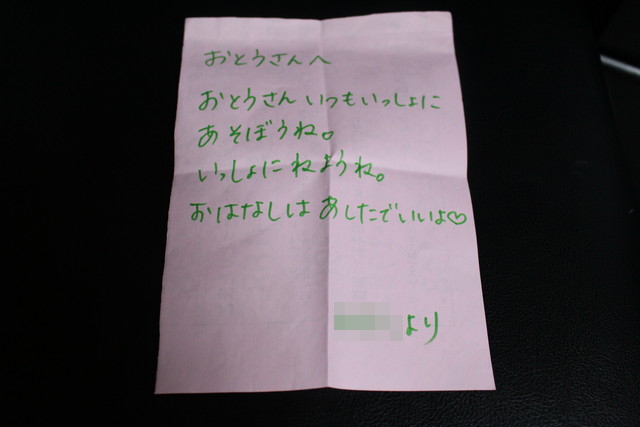 おとうさんへ
おとうさんいつもいっしょに
あそぼうね。
いっしょにねようね。
おはなしはあしたでいいよ♡
より